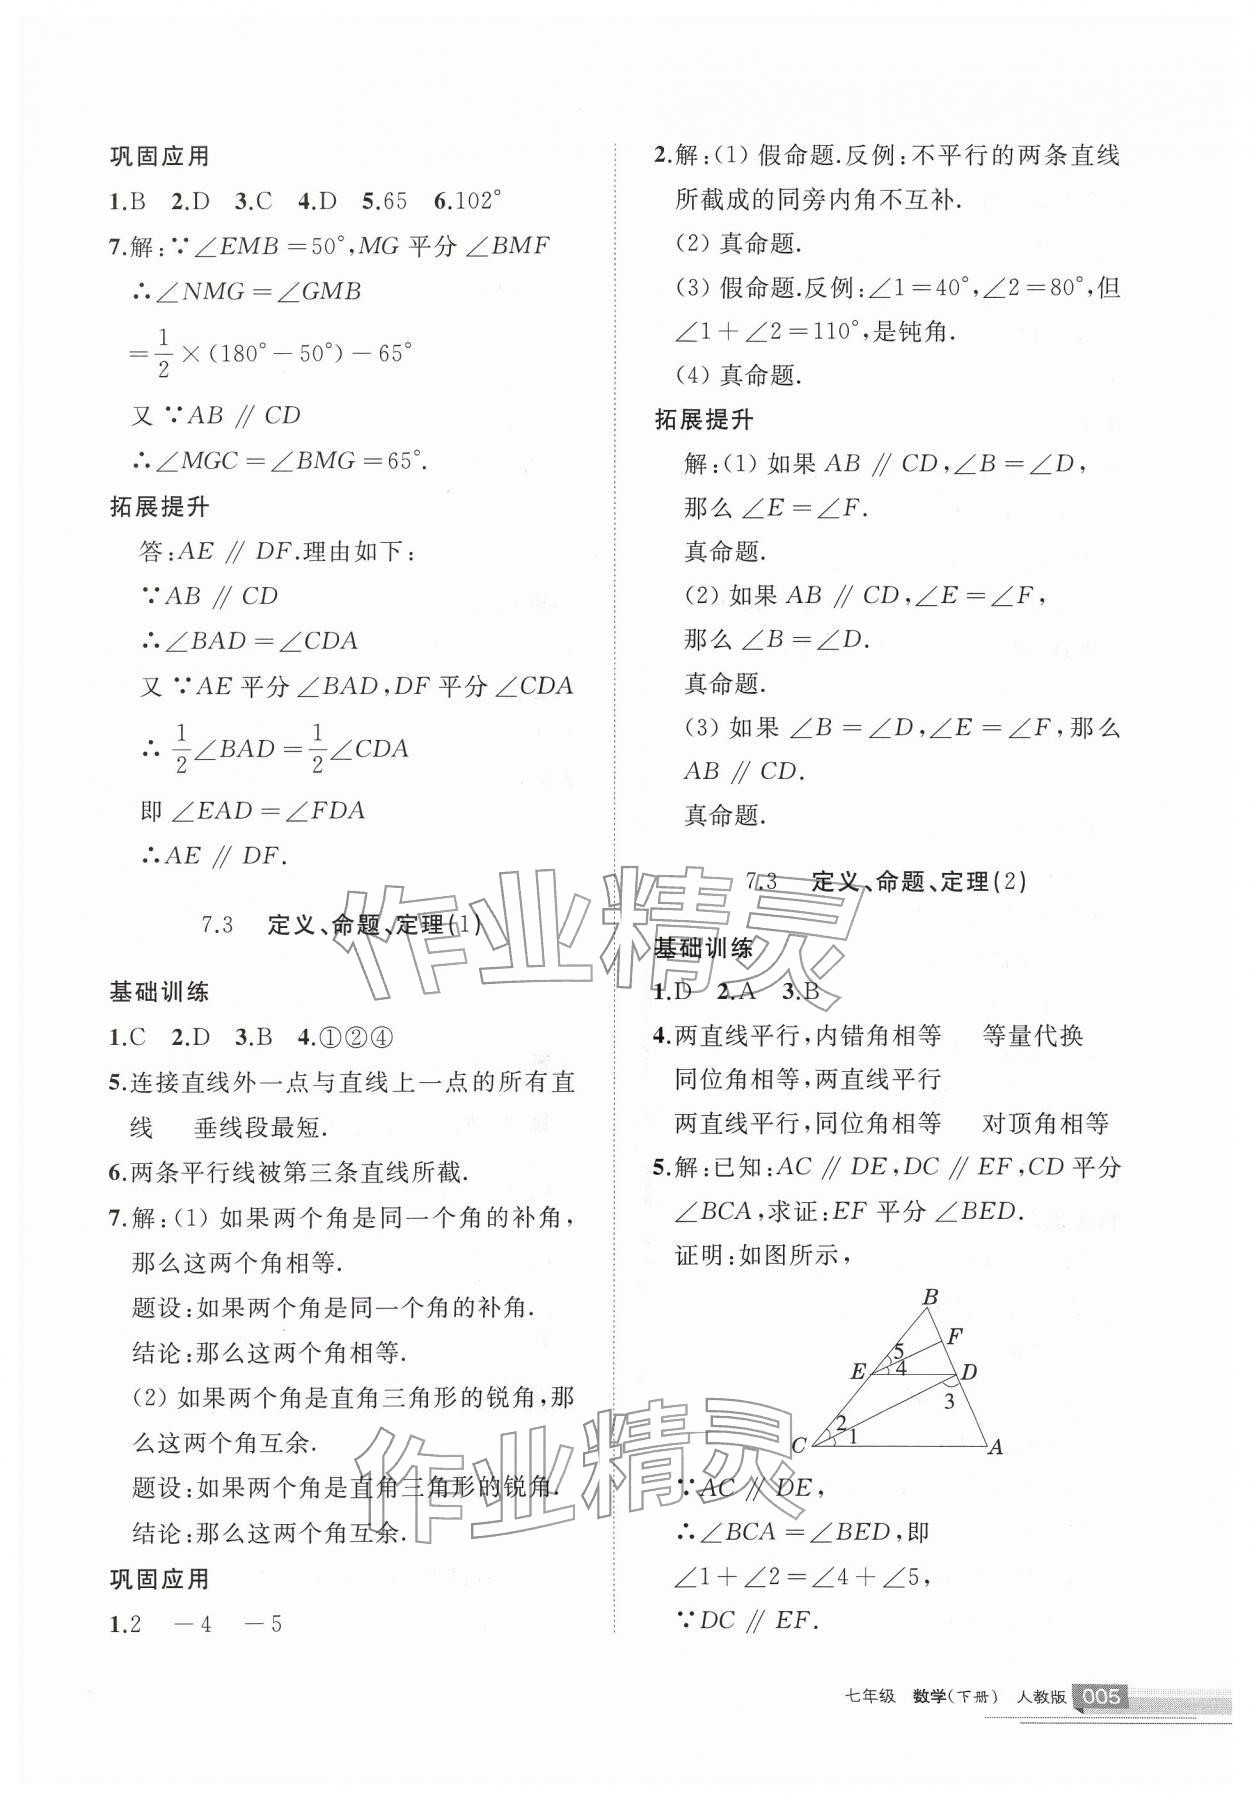 巩固应用
1.B 2.D 3.C 4.D 5.65 6.102°
7.解:∵∠EMB=50°,MG平分∠BMF
∴∠NMG=∠GMB
=1/2×(180°-50°)-65°
又∵AB∥CD
∴∠MGC=∠BMG=65°.
拓展提升
答:AE∥DF.理由如下:
∵AB∥CD
∴∠BAD=∠CDA
又∵AE平分∠BAD,DF平分∠CDA
∴1/2∠BAD=1/2∠CDA
即∠EAD=∠FDA
∴AE∥DF.
7.3 定义、命题、定理(1)
基础训练
1.C 2.D 3.B 4.①②④
5.连接直线外一点与直线上一点的所有直
线 垂线段最短.
6.两条平行线被第三条直线所截.
7.解:(1)如果两个角是同一个角的补角,
那么这两个角相等.
题设:如果两个角是同一个角的补角.
结论:那么这两个角相等.
(2)如果两个角是直角三角形的锐角,那
么这两个角互余.
题设:如果两个角是直角三角形的锐角.
结论:那么这两个角互余.
巩固应用
1.2 -4 -5
2.解:(1)假命题.反例:不平行的两条直线
所截成的同旁内角不互补.
(2)真命题.
(3)假命题.反例:∠1=40°,∠2=80°,但
∠1+∠2=110°,是钝角.
(4)真命题.
拓展提升
解:(1)如果AB∥CD,∠B=∠D,
那么∠E=∠F.
真命题.
(2)如果AB∥CD,∠E=∠F,
那么∠B=∠D.
真命题.
(3)如果∠B=∠D,∠E=∠F,那么
AB∥CD.
真命题.
7.3 定义、命题、定理(2)
基础训练
1.D 2.A 3.B
4.两直线平行,内错角相等 等量代换
同位角相等,两直线平行
两直线平行,同位角相等 对顶角相等
5.解:已知:AC∥DE,DC∥EF,CD平分
∠BCA,求证:EF平分∠BED.
证明:如图所示,
B
F
5
E 4 D
3
2
C 1 A
∵AC∥DE,
∴∠BCA=∠BED,即
∠1+∠2=∠4+∠5,
∵DC∥EF.
七年级 数学(下册) 人教版 005
作业精灵
作业精灵